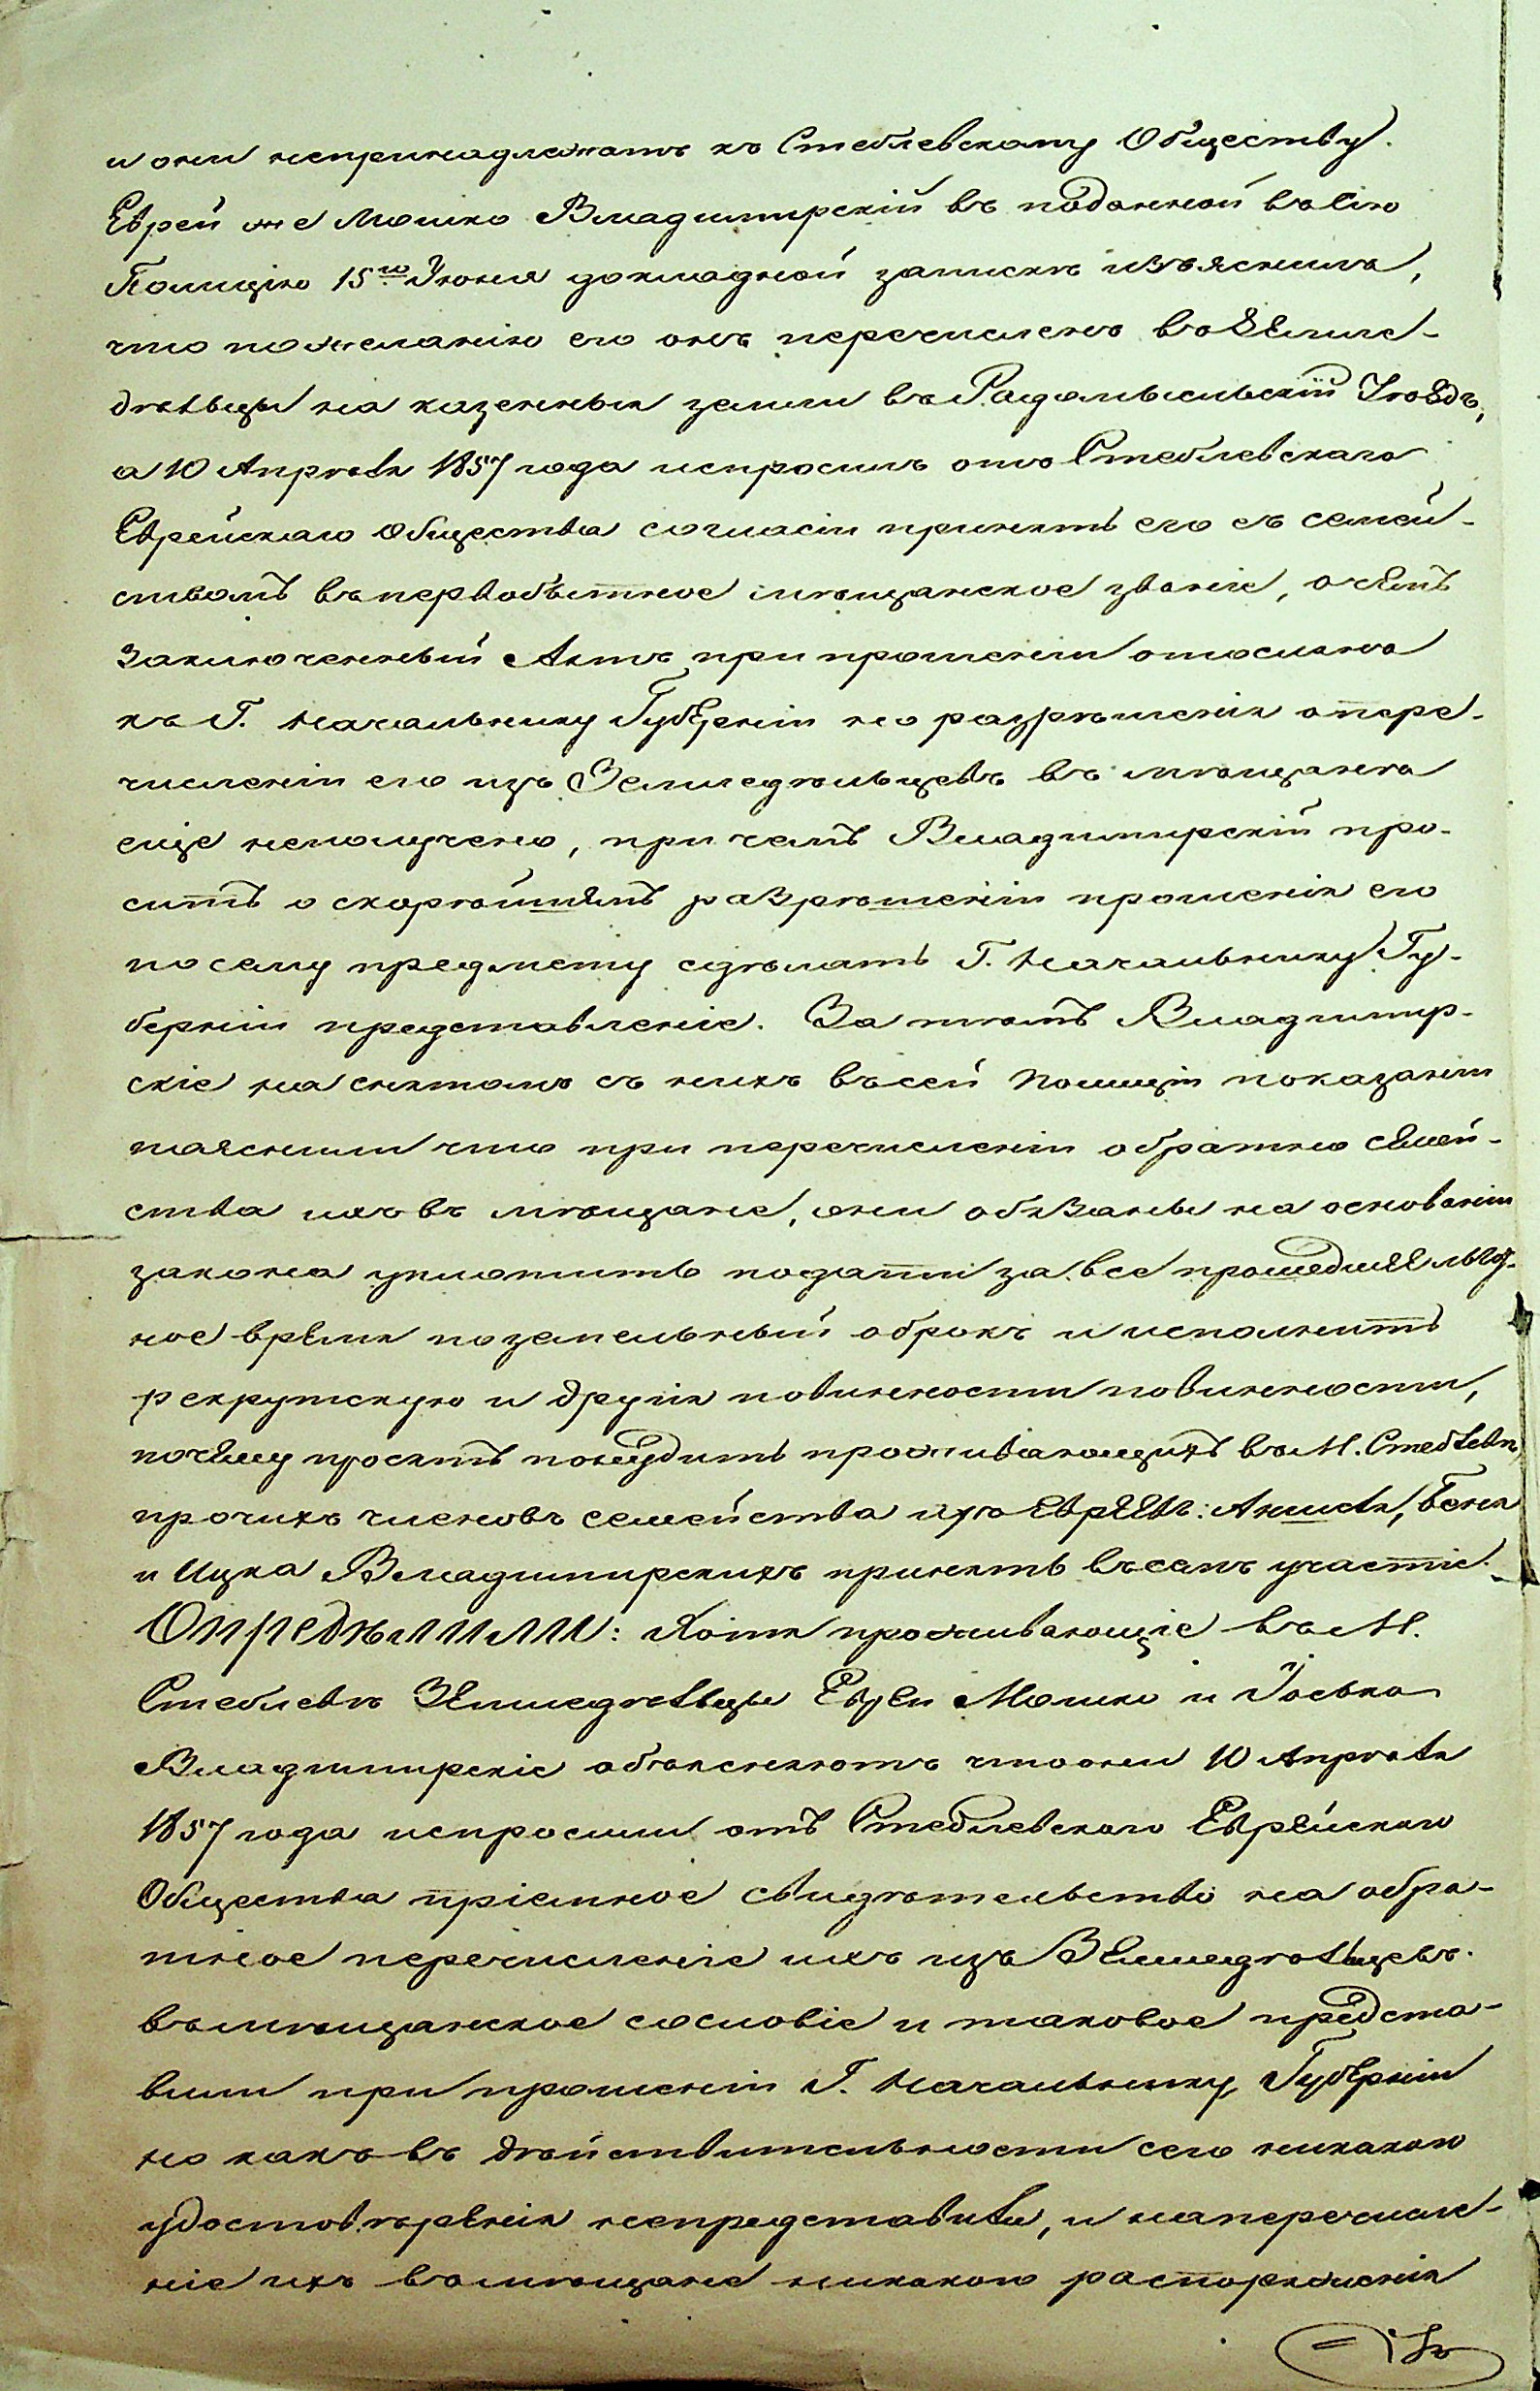 и они непринадлежатъ къ Стеблевскому Обществу.
Еврей же Мошко Владимирскій въ поданной въ сію
Полицію 15го Іюня докладной запискѣ изъяснилъ,
что по желанію его онъ перечисленъ въ Земле-
дѣльцы на казенныя земли въ Радомысльскій Уѣздъ,
а 10 Апрѣля 1857 года испросилъ отъ Стеблевскаго
Еврейскаго Общества согласіи принять его съ семей-
ствомъ въ первобытное мѣщанское званіе, о чемъ
заключенный Актъ при прошеніи отосланъ
къ Г. Начальнику Губерніи но разрѣшенія о пере-
численіи его изъ Земледѣльцевъ въ мѣщанъ
еще неполучено, при чемъ Владимирскій про-
ситъ о скорѣйшемъ разрѣшеніи прошенія его
по сему предмету сдѣлать Г. Начальнику Гу-
берніи представленіе. За тѣмъ Владимир-
скіе на снятомъ съ нихъ въ сей Полиціи показаніи
пояснили что при перечисленіи обратно семей-
ства ихъ въ мѣщане, они обязаны на основаніи
закона уплотить подати за все прошедшее льгот-
ное время поземельный оброкъ и исполнить
рекрутскую и другія повинности повинности,
почему просятъ понудить проживающихъ въ М. Стеблевѣ
прочихъ членовъ семейства ихъ Евреевъ: Аншеля, Беня
и Ицка Владимирскихъ принять въ семъ участіе.
Опредѣлили: Хотя проживающіе въ М.
Стеблевѣ Земледѣльцы Евреи Мошко и Іоська
Владимирскіе объясняютъ что они 10 Апрѣля
1857 года испросили отъ Стеблевскаго Еврейскаго
Общества пріемное свидѣтельство на обра-
тное перечисленіе ихъ изъ Земледѣльцевъ
въ мѣщанское сословіе и таковое предста-
вили при прошеніи Г. Начальнику Губерніи
но какъ въ дѣйствительности сего никакого
удостовѣренія непредставили, и на перечисле-
ніе ихъ въ мѣщане никакого распоряженія